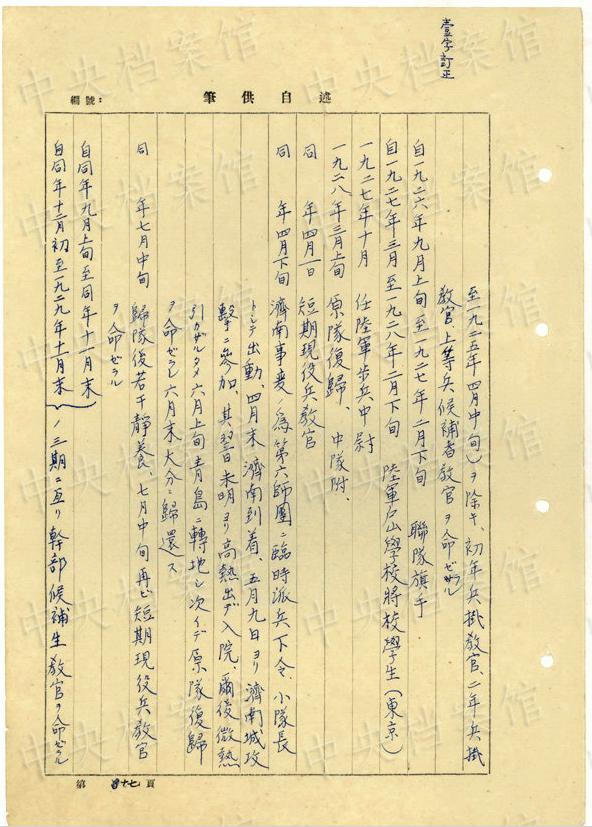 壹字訂正
編號：
筆供自述
至一九二五年四月中旬）ヲ除キ、初年兵掛教官、二年兵掛
教官、上等兵候補者教官ヲ命ゼラル
自一九二六年九月上旬至一九二七年二月下旬　聯隊旗手
自一九二七年三月至一九二八年二月下旬　陸軍戸山學校將校學生（東京）
一九二七年十月　任陸軍歩兵中尉
一九二八年三月上旬　原隊復歸、中隊附、
同　年四月一日　短期現役兵教官
同　年四月下旬　濟南事変ノ為第六師團ニ臨時派兵下令、小隊長
トシテ出動、四月末濟南到着、五月九日ヨリ濟南城攻
擊ニ參加、其翌日未明ヨリ高熱出デ入院、爾後微熱
引カザルタメ六月上旬青島ニ轉地シ次イデ原隊復歸
ヲ命ゼラレ六月末大分ニ歸還ス
同　年七月中旬　歸隊後若干靜養、七月中旬再ビ短期現役兵教官
ヲ命ゼラル
自同年九月上旬至同年十一月末
自同年十二月初至一九二九年十一月末｝ノ三期ニ亙リ幹部候補生教官ヲ命ゼラル
第　頁
中央档案馆